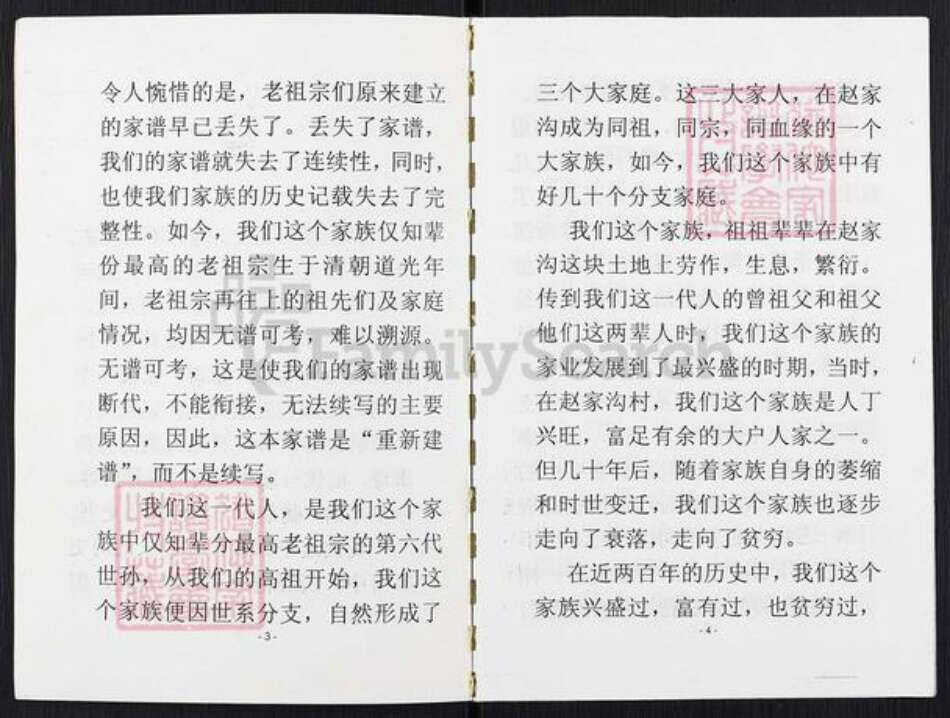 令人惋惜的是，老祖宗们原来建立
的家谱早已丢失了。丢失了家谱，
我们的家谱就失去了连续性，同时，
也使我们家族的历史记载失去了完
整性。如今，我们这个家族仅知辈
份最高的老祖宗生于清朝道光年
间，老祖宗再往上的祖先们及家庭
情况，均因无谱可考，难以溯源。
无谱可考，这是使我们的家谱出现
断代，不能衔接，无法续写的主要
原因，因此，这本家谱是“重新建
谱”，而不是续写。
我们这一代人，是我们这个家
族中仅知辈分最高老祖宗的第六代
世孙，从我们的高祖开始，我们这
个家族便因世系分支，自然形成了
-3-
三个大家庭。这三大家人，在赵家
沟成为同祖，同宗，同血缘的一个
大家族，如今，我们这个家族中有
好几十个分支家庭。
我们这个家族，祖祖辈辈在赵家
沟这块土地上劳作，生息，繁衍。
传到我们这一代人的曾祖父和祖父
他们这两辈人时，我们这个家族的
家业发展到了最兴盛的时期，当时，
在赵家沟村，我们这个家族是人丁
兴旺，富足有余的大户人家之一。
但几十年后，随着家族自身的萎缩
和时世变迁，我们这个家族也逐步
走向了衰落，走向了贫穷。
在近两百年的历史中，我们这个
家族兴盛过，富有过，也贫穷过，
-4-
FamilySearch